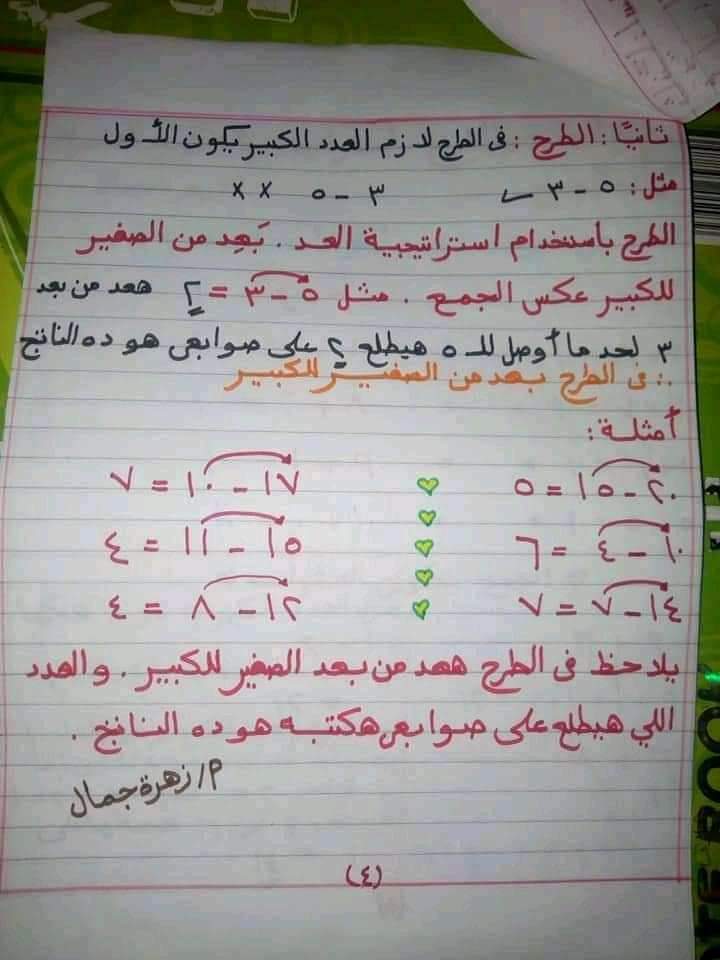 ثانيًا: الطرح: فى الطرح لازم العدد الكبير يكون الأول
مثل: ٥ - ٣ ✓ ٣ - ٥ × ×
الطرح باستخدام استراتيجية العد. بَعِد من الصغير
للكبير عكس الجمع. مثل ٥ - ٣ = ٢ هعد من بعد
٣ لحد ما أوصل للـ ٥ هيطلع ٢ على صوابعى هو ده الناتج
∴ فى الطرح بعد من الصغير للكبير
أمثلة:
٢٠ - ١٥ = ٥ ١٧ - ١٠ = ٧
١٠ - ٤ = ٦ ١٥ - ١١ = ٤
١٤ - ٧ = ٧ ١٢ - ٨ = ٤
يلاحظ فى الطرح هعد من بعد الصغير للكبير. والعدد
اللي هيطلع على صوابعى هكتبه هو ده الناتج.
م/ زهرة جمال
(٤)